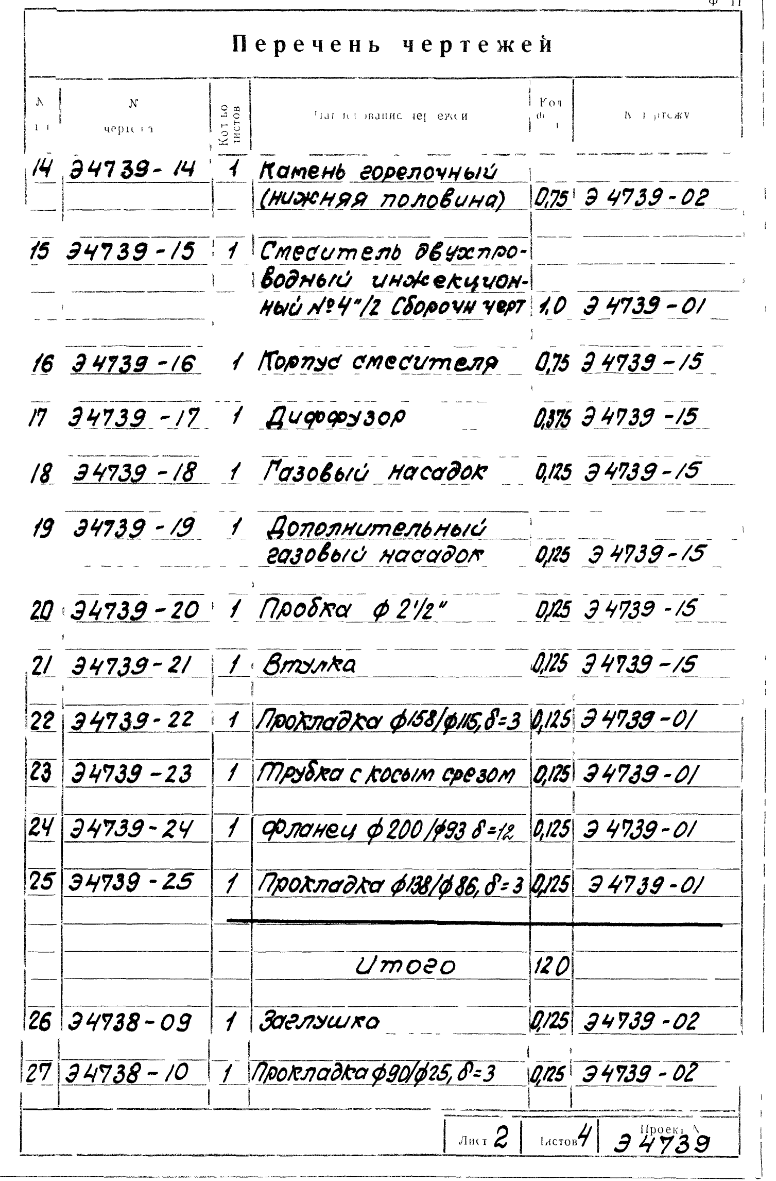 Перечень чертежей
№ № Кол-во листов Наименование чертежей Кол К чертежу
чертежа
14 Э4739-14 1 Камень горелочный
(нижняя половина) 0,75 Э4739-02
15 Э4739-15 1 Смеситель двухпро-
водный инжекцион-
ный №4"/2 Сборочн черт 1,0 Э4739-01
16 Э4739-16 1 Корпус смесителя 0,75 Э4739-15
17 Э4739-17 1 Диффузор 0,375 Э4739-15
18 Э4739-18 1 Газовый насадок 0,125 Э4739-15
19 Э4739-19 1 Дополнительный
газовый насадок 0,125 Э4739-15
20 Э4739-20 1 Пробка ф 2 1/2" 0,125 Э4739-15
21 Э4739-21 1 Втулка 0,125 Э4739-15
22 Э4739-22 1 Прокладка ф158/ф115, δ=3 0,125 Э4739-01
23 Э4739-23 1 Трубка с косым срезом 0,125 Э4739-01
24 Э4739-24 1 Фланец ф200/ф93 δ=12 0,125 Э4739-01
25 Э4739-25 1 Прокладка ф138/ф86, δ=3 0,125 Э4739-01
Итого 12 0
26 Э4738-09 1 Заглушка 0,125 Э4739-02
27 Э4738-10 1 Прокладка ф90/ф25, δ=3 0,125 Э4739-02
Лист 2 Листов 4 Проект №
Э4739